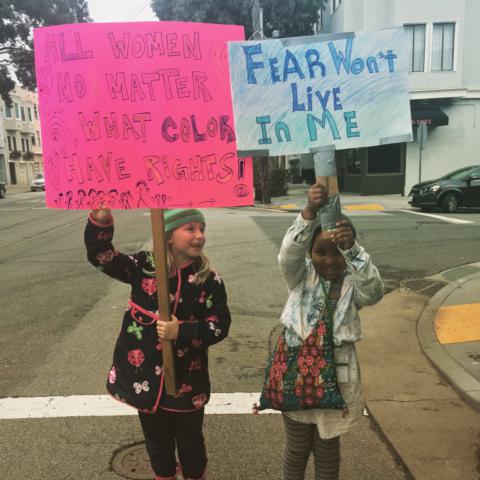 ALL WOMEN
NO MATTER
WHAT COLOR
HAVE RIGHTS!
FEAR Won't
Live
In Me